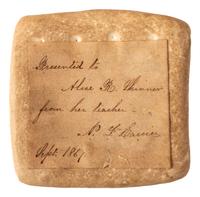 Presented to
Alice R. Skinner
from her teacher
N. F.
Sept. 1867